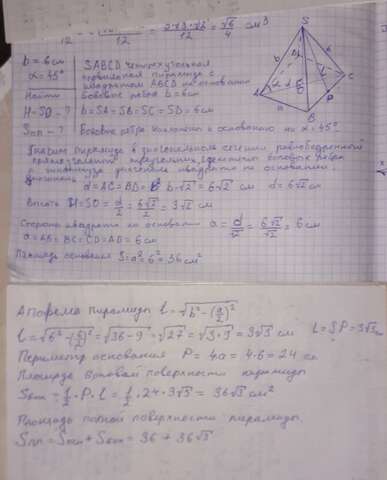 12 12 = 2·√3·√2 / 12 = √6 / 4 см³
b = 6 см
α = 45°
Найти
H = SO - ?
Sпп - ?
SABCD четырехугольная
правильная пирамида с
квадратом ABCD на основании
боковое ребро b = 6 см
b = SA = SB = SC = SD = 6 см
Боковое ребро наклонено к основанию на α = 45°
S
b
b
A
B
C
P
a
α
пирамиды в диагональном сечении равнобедренный
прямоугольный треугольник, боковых ребра
квадрата на основании
d = AC = BD = b√2 = 6√2 см d = 6√2 см
Высота H = SO = d/2 = 6√2/2 = 3√2 см
Сторона квадрата на основании a = d/√2 = 6√2/√2 = 6 см
a = AB = BC = CD = AD = 6 см
Площадь основания S = a² = 6² = 36 см²
Апофема пирамиды l = √(b² - (a/2)²)
l = √(6² - (6/2)²) = √(36 - 9) = √27 = √(9·3) = 3√3 см L = SP = 3√3 см
Периметр основания P = 4a = 4·6 = 24 см
Площадь боковой поверхности пирамиды
Sбок = 1/2 · P · l = 1/2 · 24 · 3√3 = 36√3 см²
Площадь полной поверхности пирамиды
Sпп = Sосн + Sбок = 36 + 36√3